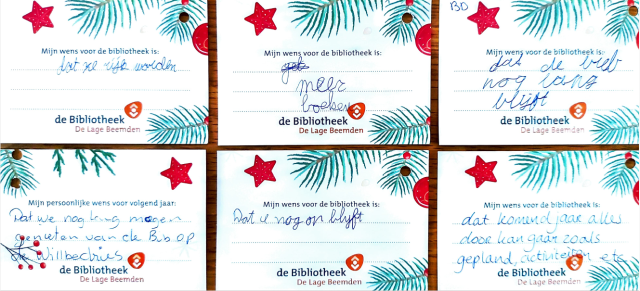 Mijn wens voor de bibliotheek is:
dat ze rijk worden
de Bibliotheek
De Lage Beemden
Mijn wens voor de bibliotheek is:
meer
boeken
de Bibliotheek
De Lage Beemden
BD
Mijn wens voor de bibliotheek is:
dat de bieb
nog lang
blijft
de Bibliotheek
De Lage Beemden
Mijn persoonlijke wens voor volgend jaar:
Dat we nog lang mogen
genieten van de Bib op
de Willbectries
de Bibliotheek
De Lage Beemden
Mijn wens voor de bibliotheek is:
Dat ie nog op blyft
de Bibliotheek
De Lage Beemden
Mijn wens voor de bibliotheek is:
dat komend jaar alles
door kan gaan zoals
gepland, activiteiten etc.
de Bibliotheek
De Lage Beemden